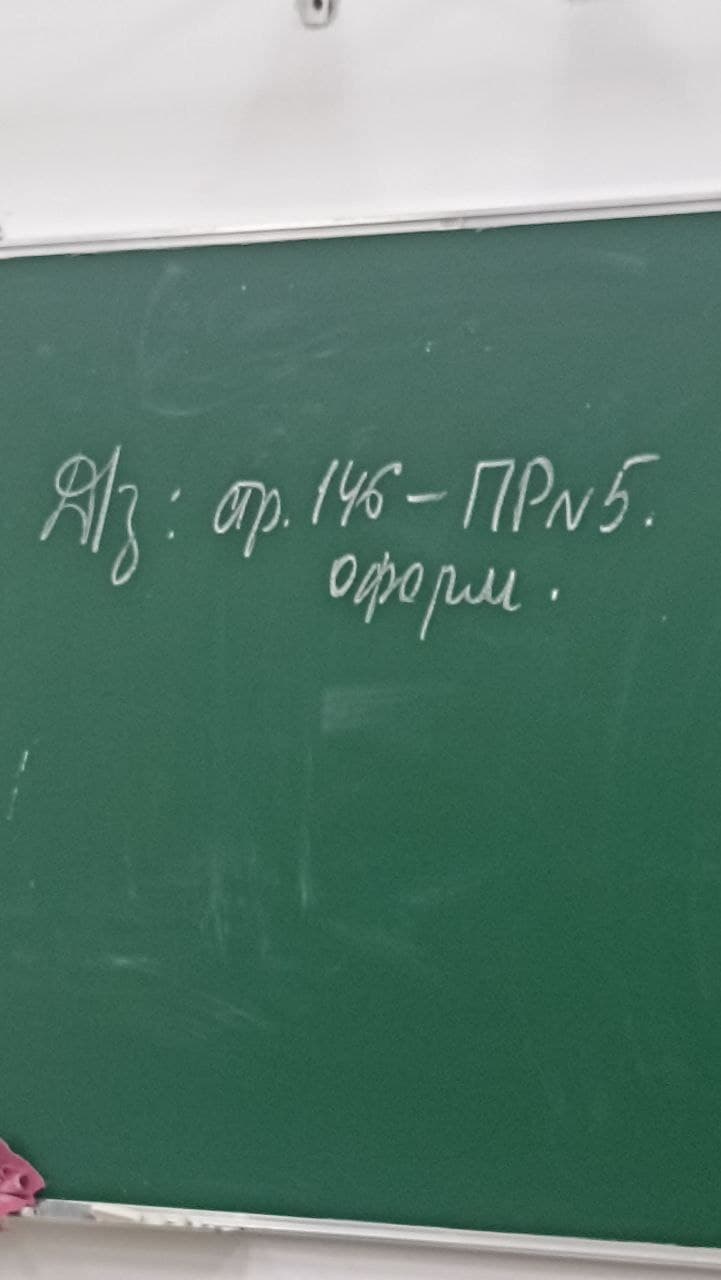 Д/з: стр. 146 - ПР№5.
оформ.